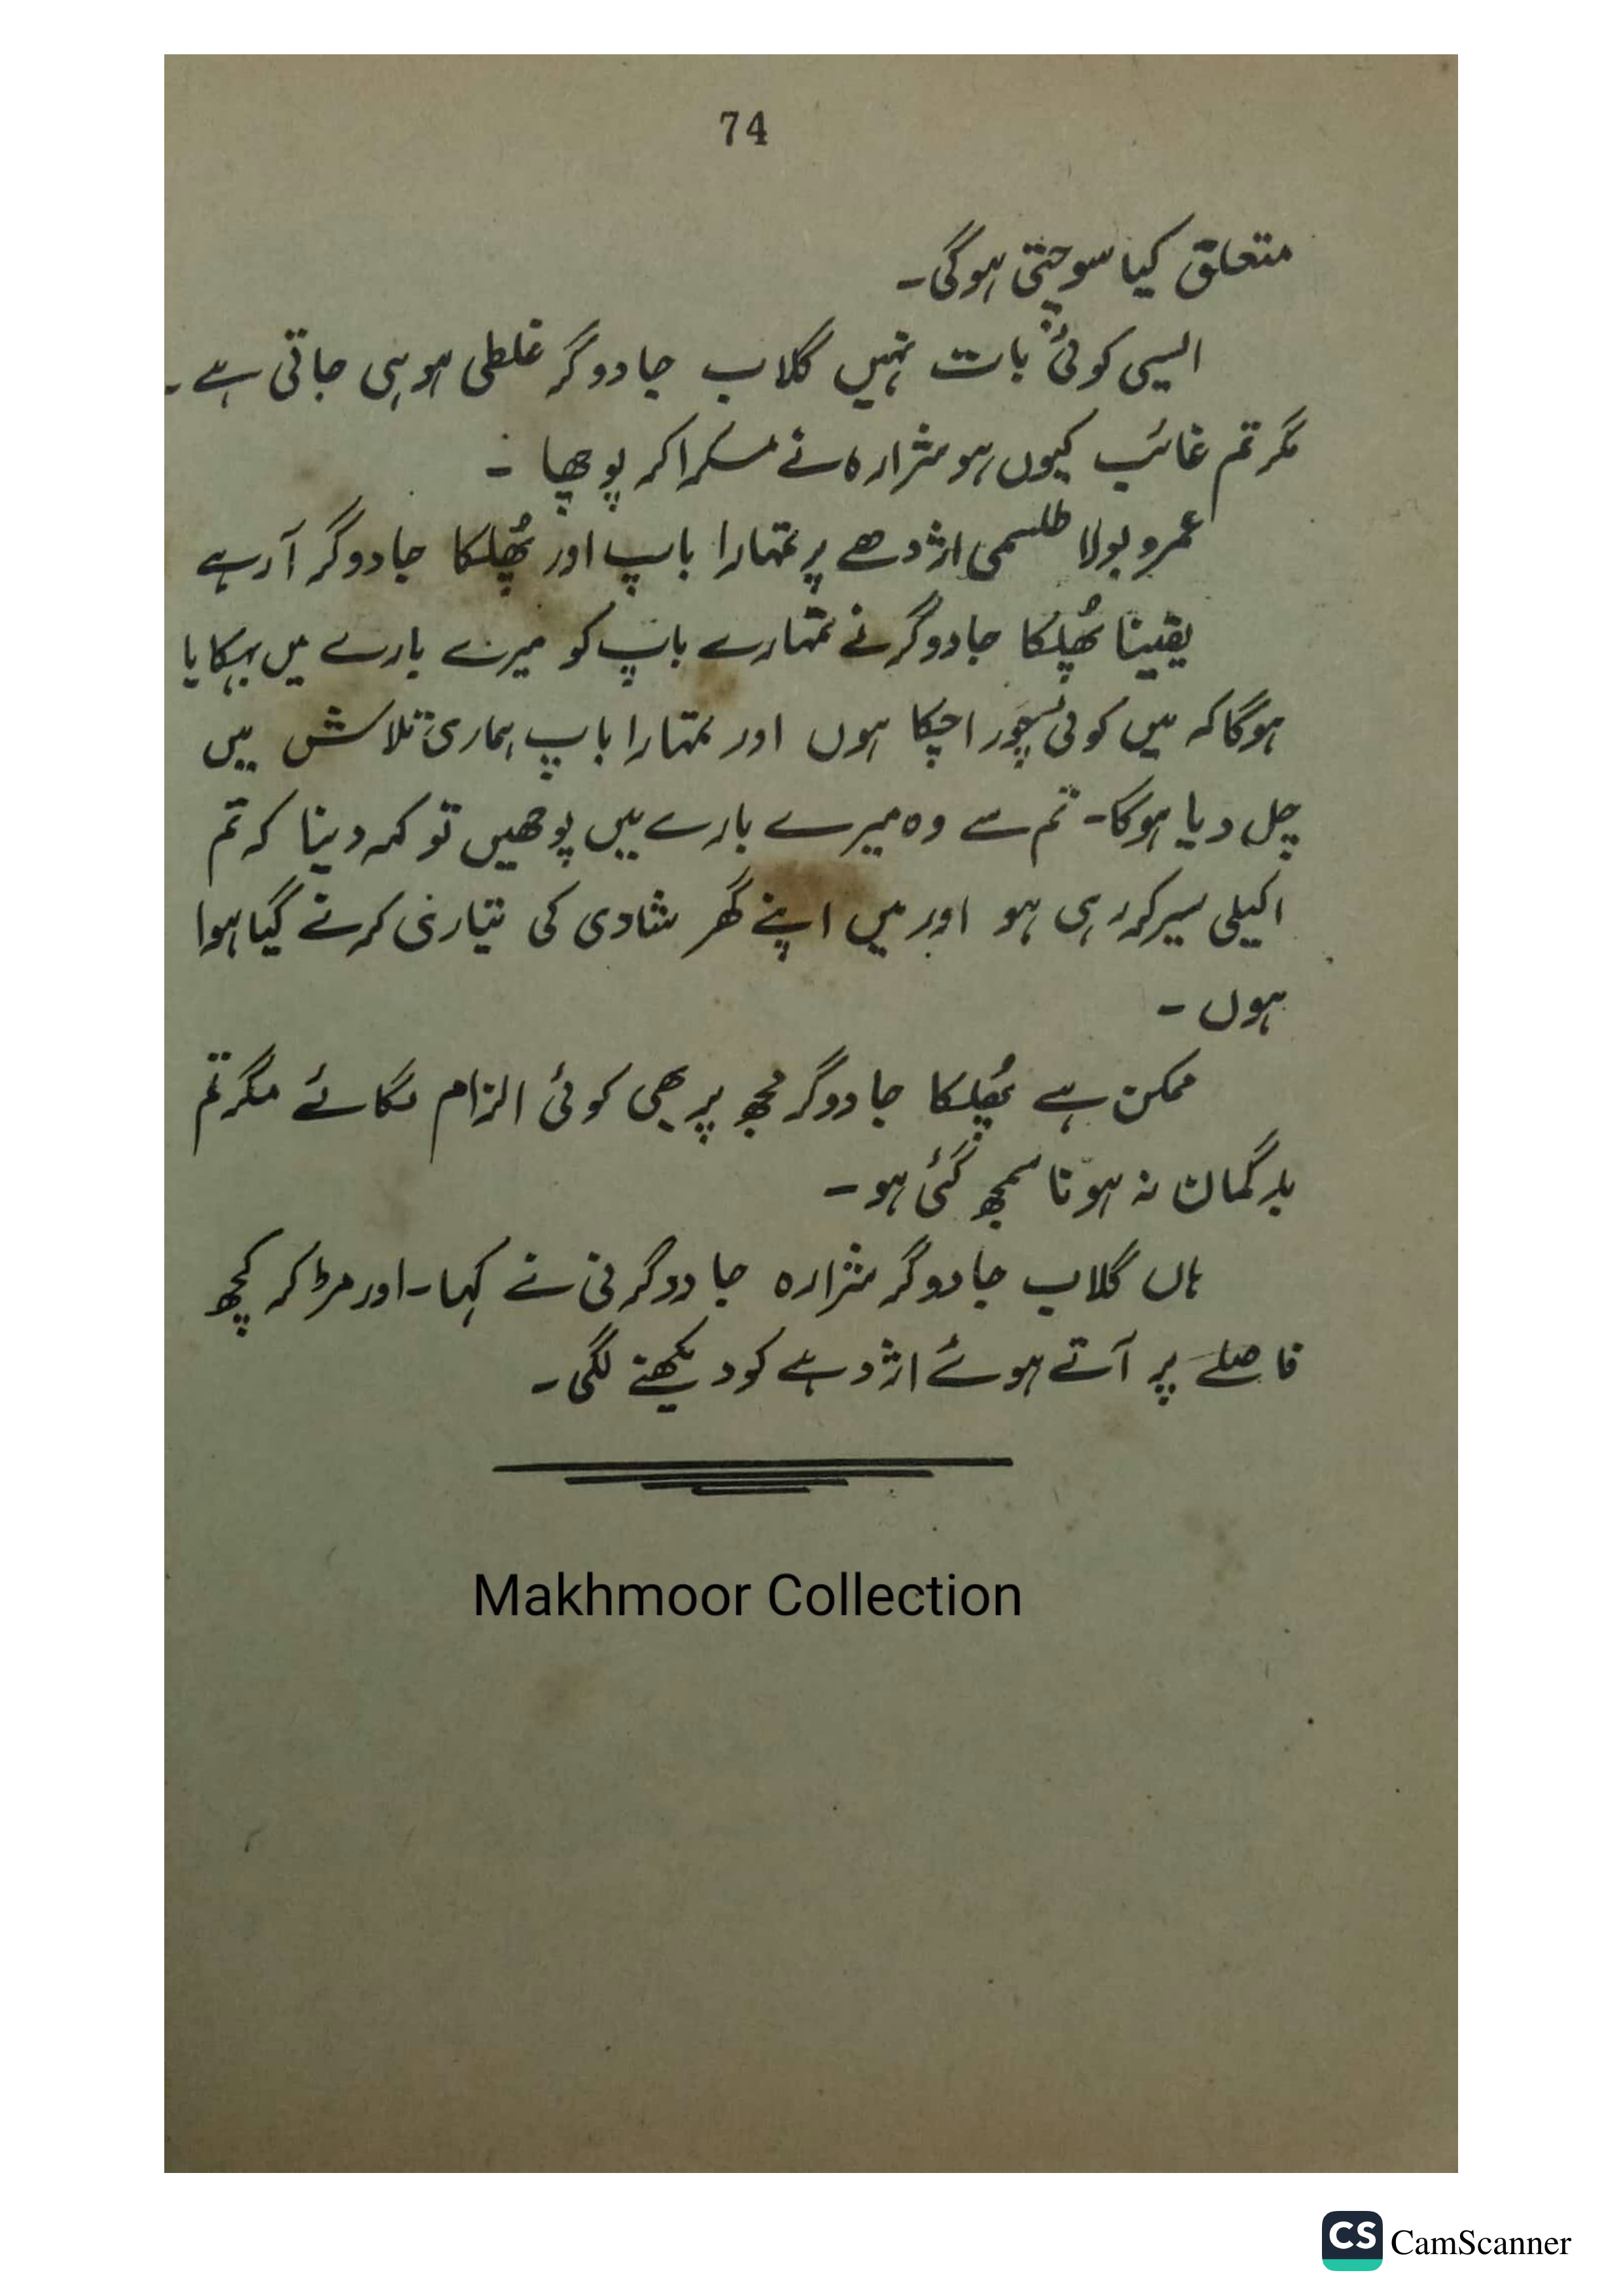 74
متعلق کیا سوچتی ہوگی۔
ایسی کوئی بات نہیں گلاب جادوگر غلطی ہو ہی جاتی ہے۔
مگر تم غائب کیوں ہو شرارہ نے مسکرا کر پوچھا ۔
عمرو بولا طلسمی اژدھے پر تمہارا باپ اور پُھلکا جادوگر آ رہے
یقینا پُھلکا جادوگر نے تمہارے باپ کو میرے بارے میں بہکایا
ہوگا کہ میں کوئی چور اچکا ہوں اور تمہارا باپ ہماری تلاش میں
چل دیا ہوگا۔ تم سے وہ میرے بارے میں پوچھیں تو کہہ دینا کہ تم
اکیلی سیر کر رہی ہو اور میں اپنے گھر شادی کی تیاری کرنے گیا ہوا
ہوں ۔
ممکن ہے پُھلکا جادوگر مجھ پر بھی کوئی الزام لگائے مگر تم
بدگمان نہ ہونا سمجھ گئی ہو۔
ہاں گلاب جادوگر شرارہ جادوگرنی نے کہا۔ اور مڑ کر کچھ
فاصلے پر آتے ہوئے اژدہے کو دیکھنے لگی۔
Makhmoor Collection
CS CamScanner